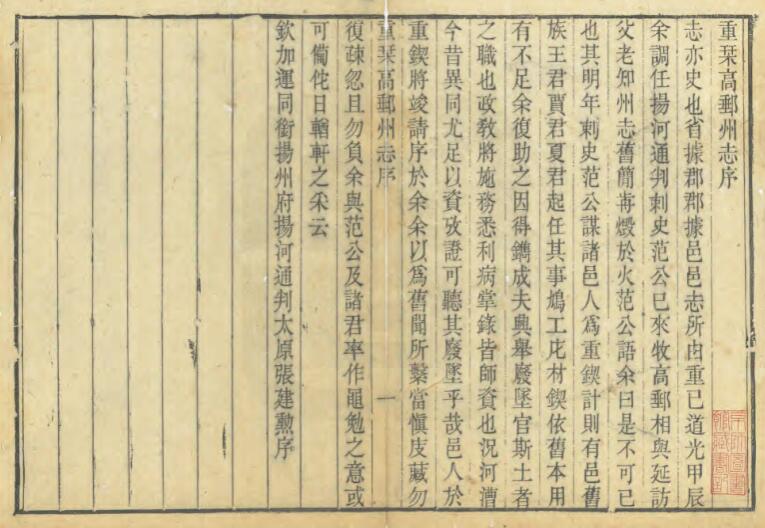 重栞高郵州志序
志亦史也省據郡郡據邑邑志所由重已道光甲辰
余調任揚河通判刺史范公已來牧高郵相與延訪
父老知州志舊蕳毐燬於火范公語余曰是不可已
也其明年刺史范公謀諸邑人爲重鍥計則有邑舊
族王君賈君夏君起任其事鳩工庀材鍥依舊本用
有不足余復助之因得鐫成夫典舉廢墜官斯土者
之職也政敎將施務悉利病掌錄皆師資也況河漕
今昔異同尤足以資攷證可聽其廢墜乎哉邑人於
重鍥將竣請序於余余以爲舊聞所繫當愼庋藏勿
重栞高郵州志序 一
復疎忽且勿負余與范公及諸君率作黽勉之意或
可僃侘日輶軒之采云
欽加運同銜揚州府揚河通判太原張建勲序